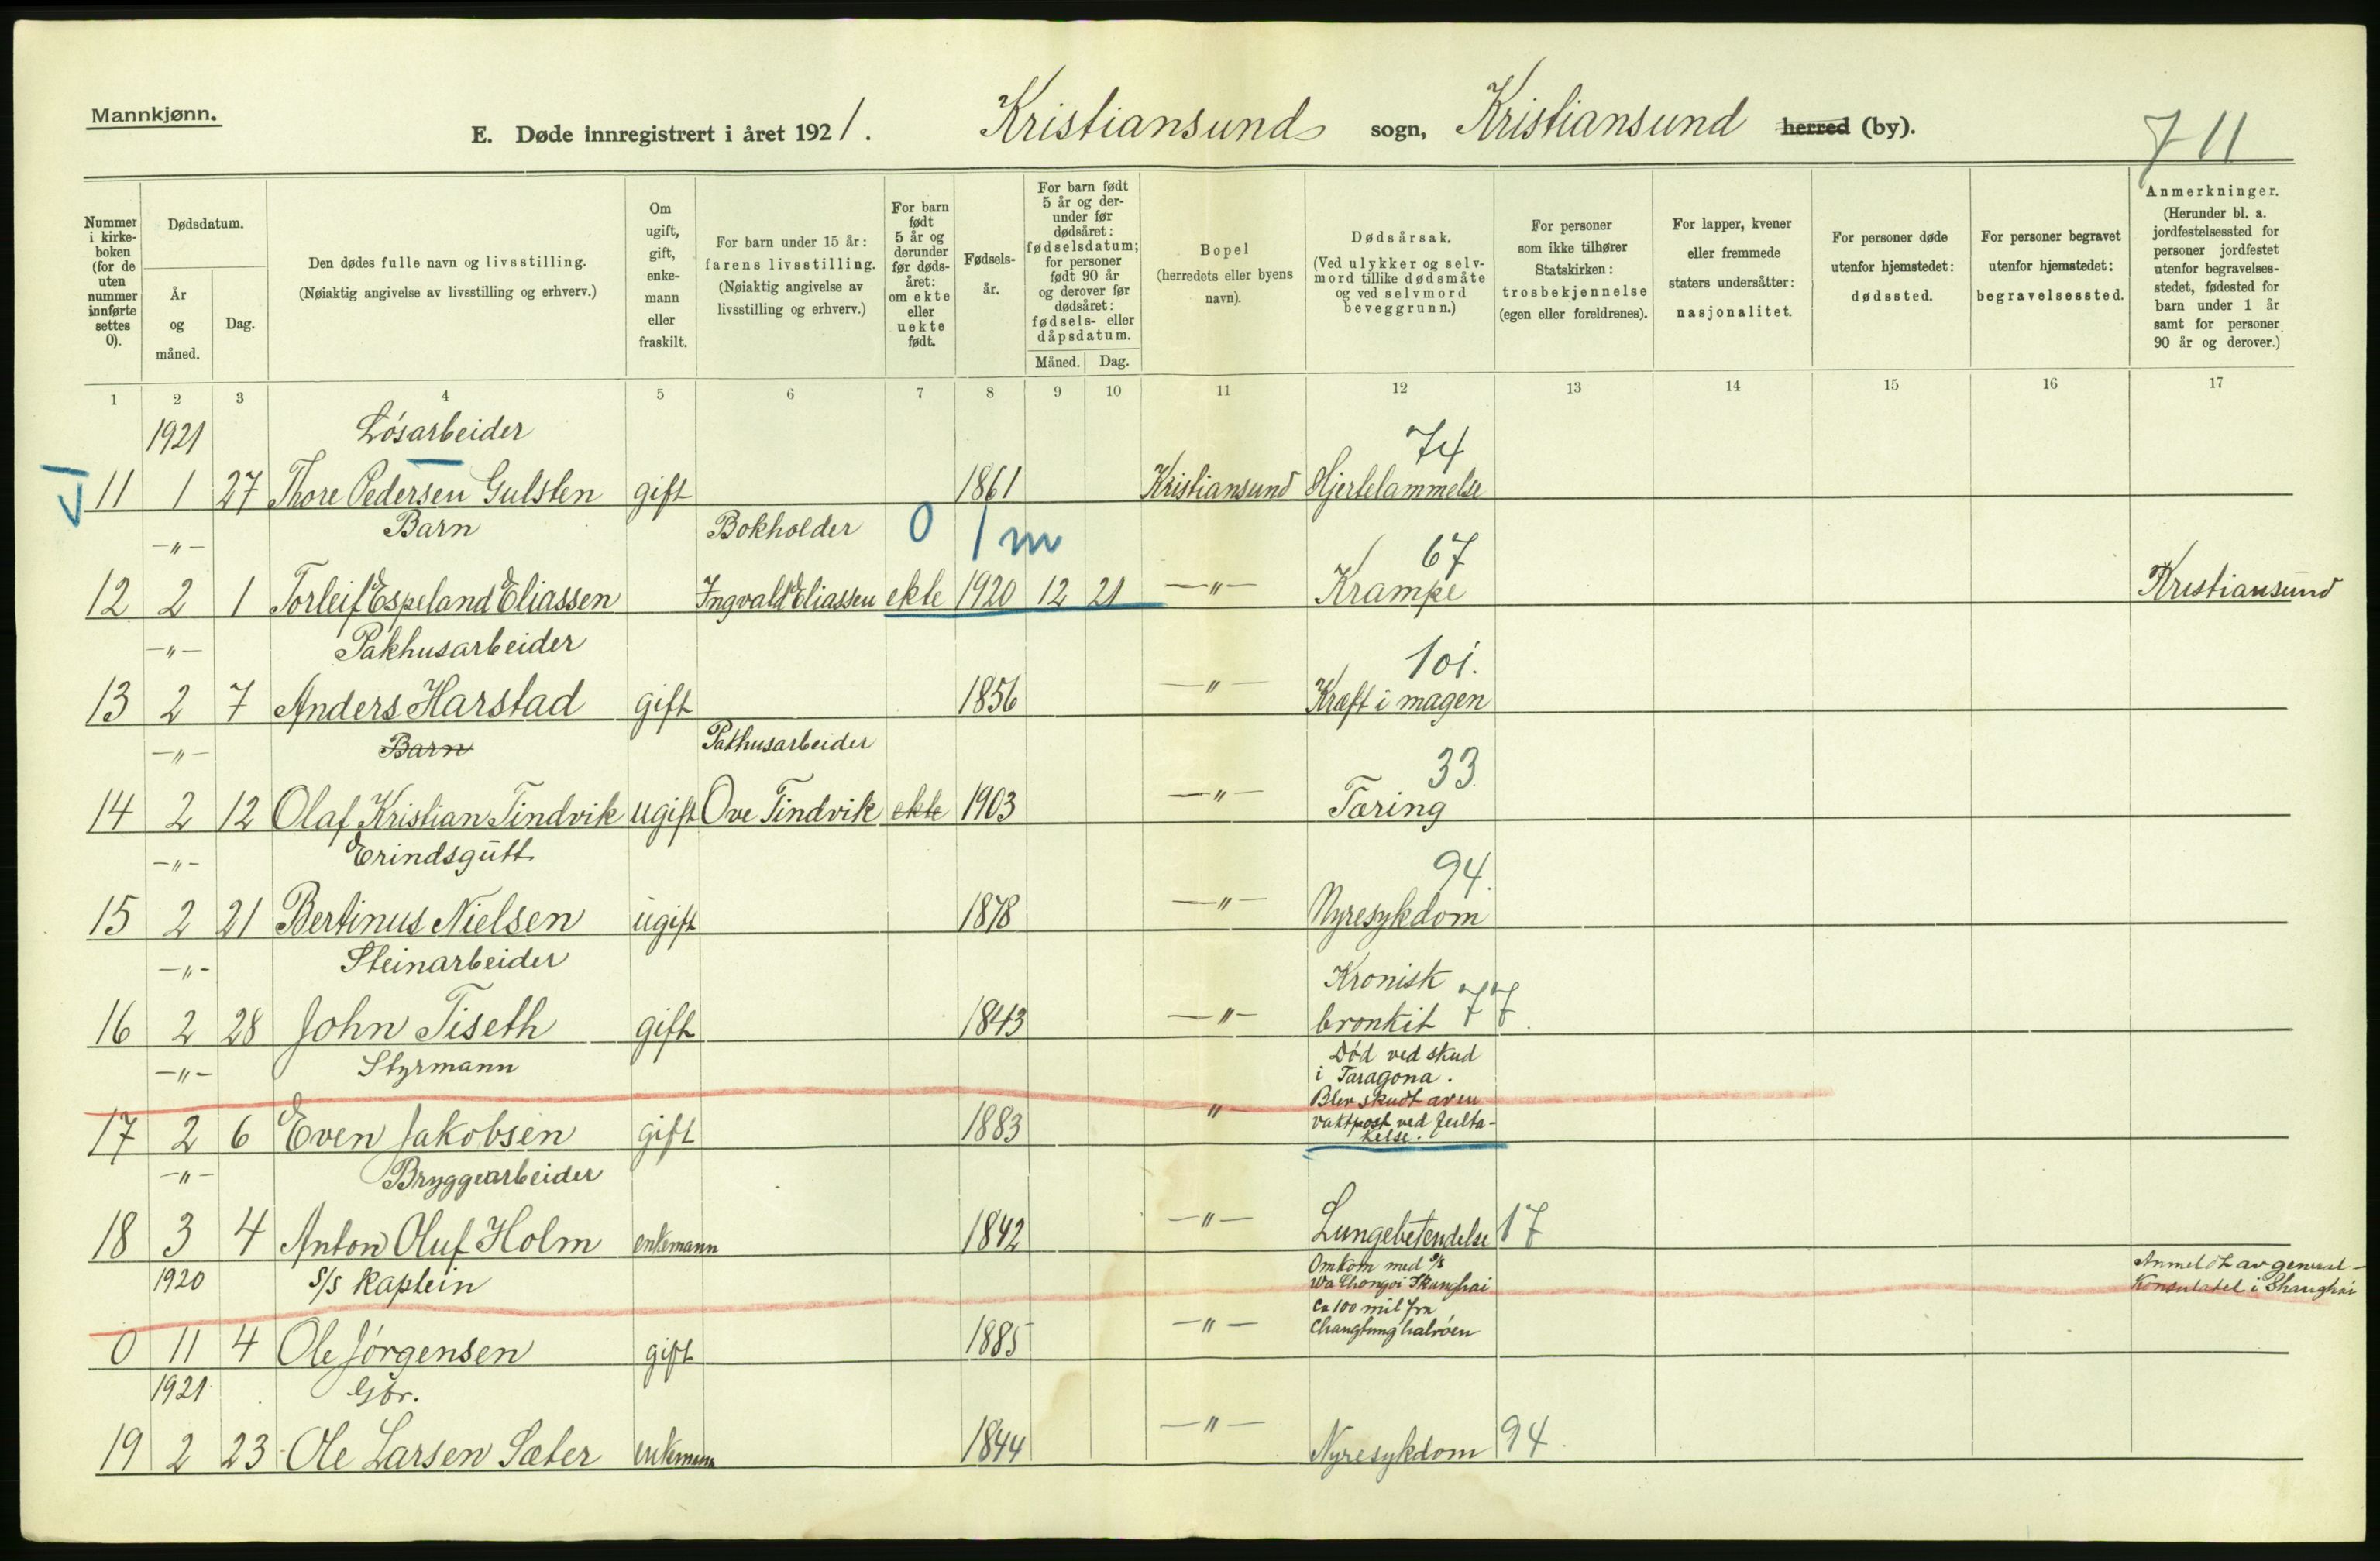 Mannkjønn.
E. Døde innregistrert i året 1921. Kristiansund sogn, Kristiansund herred (by).
7 11
Nummer i kirkeboken (for de uten nummer innførte settes 0).
Dødsdatum.
År og måned.
Dag.
Den dødes fulle navn og livsstilling.
(Nøiaktig angivelse av livsstilling og erhverv.)
Om ugift, gift, enkemann eller fraskilt.
For barn under 15 år: farens livsstilling.
(Nøiaktig angivelse av livsstilling og erhverv.)
For barn født 5 år og derunder før dødsåret: om ekte eller uekte født.
Fødselsår.
For barn født 5 år og derunder før dødsåret: fødselsdatum; for personer født 90 år og derover før dødsåret: fødsels- eller dåpsdatum.
Måned. Dag.
Bopel (herredets eller byens navn).
Dødsårsak.
(Ved ulykker og selvmord tillike dødsmåte og ved selvmord beveggrunn.)
For personer som ikke tilhører Statskirken: trosbekjennelse (egen eller foreldrenes).
For lapper, kvener eller fremmede staters undersåtter: nasjonalitet.
For personer døde utenfor hjemstedet: dødssted.
For personer begravet utenfor hjemstedet: begravelsessted.
Anmerkninger.
(Herunder bl. a. jordfestelsessted for personer jordfestet utenfor begravelsesstedet, fødested for barn under 1 år samt for personer 90 år og derover.)
1 2 3 4 5 6 7 8 9 10 11 12 13 14 15 16 17
1921 Løsarbeider 74
11 1 27 Thore Pedersen Gulsten gift 1861 Kristiansund Hjertelammelse
—"— Barn Bokholder 0 1 m 67
12 2 1 Torleif Espeland Eliassen Ingvald Eliassen ekte 1920 12 21 —"— Krampe Kristiansund
—"— Pakhusarbeider 101.
13 2 7 Anders Harstad gift 1856 —"— Kræft i magen
—"— Barn Pakhusarbeider 33
14 2 12 Olaf Kristian Tindvik ugift Ove Tindvik ekte 1903 —"— Tæring
—"— Erindsgutt 94.
15 2 21 Bertinus Nielsen ugift 1878 —"— Nyresykdom
—"— Steinarbeider Kronisk
16 2 28 John Tiseth gift 1843 —"— bronkit 77.
—"— Styrmann Død ved skud
i Taragona.
Blev skudt av en
17 2 6 Even Jakobsen gift 1883 " vaktpost ved feilta-
kelse.
—"— Bryggearbeider
18 3 4 Anton Oluf Holm enkemann 1842 —"— Lungebetendelse 17
1920 s/s kaptein Omkom med s/s Anmeldt av general-
Wa Chang i Skanghai Konsulatet i Shanghai
ca 100 mil fra
0 11 4 Ole Jørgensen gift 1885 —"— Changtung halvøen
1921 Gbr.
19 2 23 Ole Larsen Sæter enkemann 1844 —"— Nyresykdom 94.